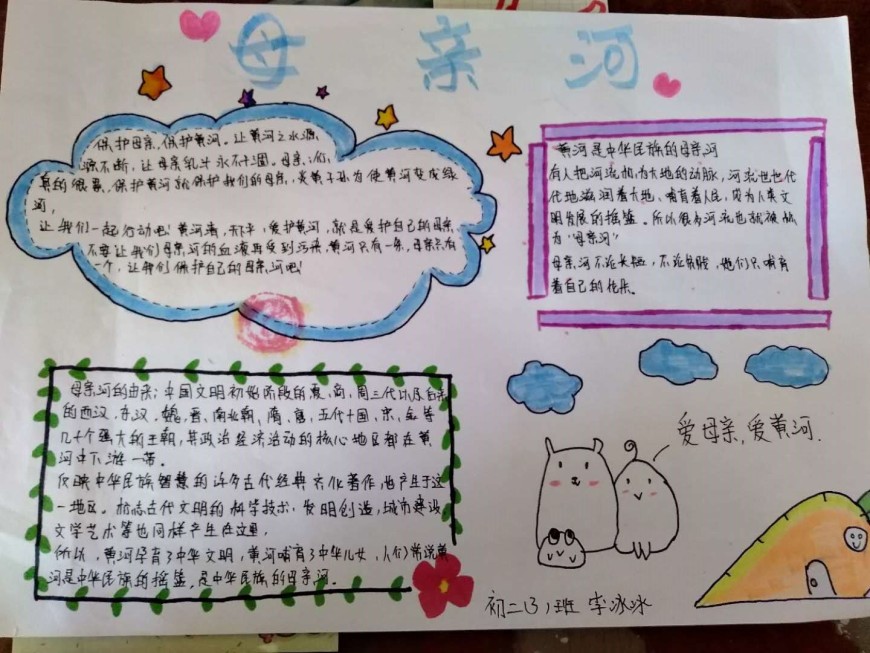 母亲河
保护母亲,保护黄河。让黄河之水源
源不断,让母亲乳汁永不干涸。母亲,
真的很累,保护黄河就保护我们的母亲,炎黄子孙为使黄河变成绿
河,
让我们一起行动吧!黄河清,天下平,爱护黄河,就是爱护自己的母亲
不要让我们母亲河的血液再受到污染,黄河只有一条,母亲只有
一个,让我们保护自己的母亲河吧!
黄河是中华民族的母亲河
有人把河流称为大地的动脉,河流世世代
代地滋润着大地,哺育着人民,成为人类文
明发展的摇篮。所以很多河流也就被称
为“母亲河”
母亲河不论长短,不论贫贱,她们只哺育
着自己的花朵。
爱母亲,爱黄河.
母亲河的由来:中国文明初始阶段的夏、商、周三代以及后来
的西汉、东汉、魏、晋、南北朝、隋、唐、五代十国、宋、金等
几十个强大的王朝,其政治经济活动的核心地区都在黄
河中下游一带。
反映中华民族智慧的许多古代经典文化著作,也产生于这
一地区。标志古代文明的科学技术、发明创造、城市建设
文学艺术等也同样产生在这里,
所以,黄河孕育了中华文明,黄河哺育了中华儿女,人们常说黄
河是中华民族的摇篮,是中华民族的母亲河。
初二(3)班 李冰冰